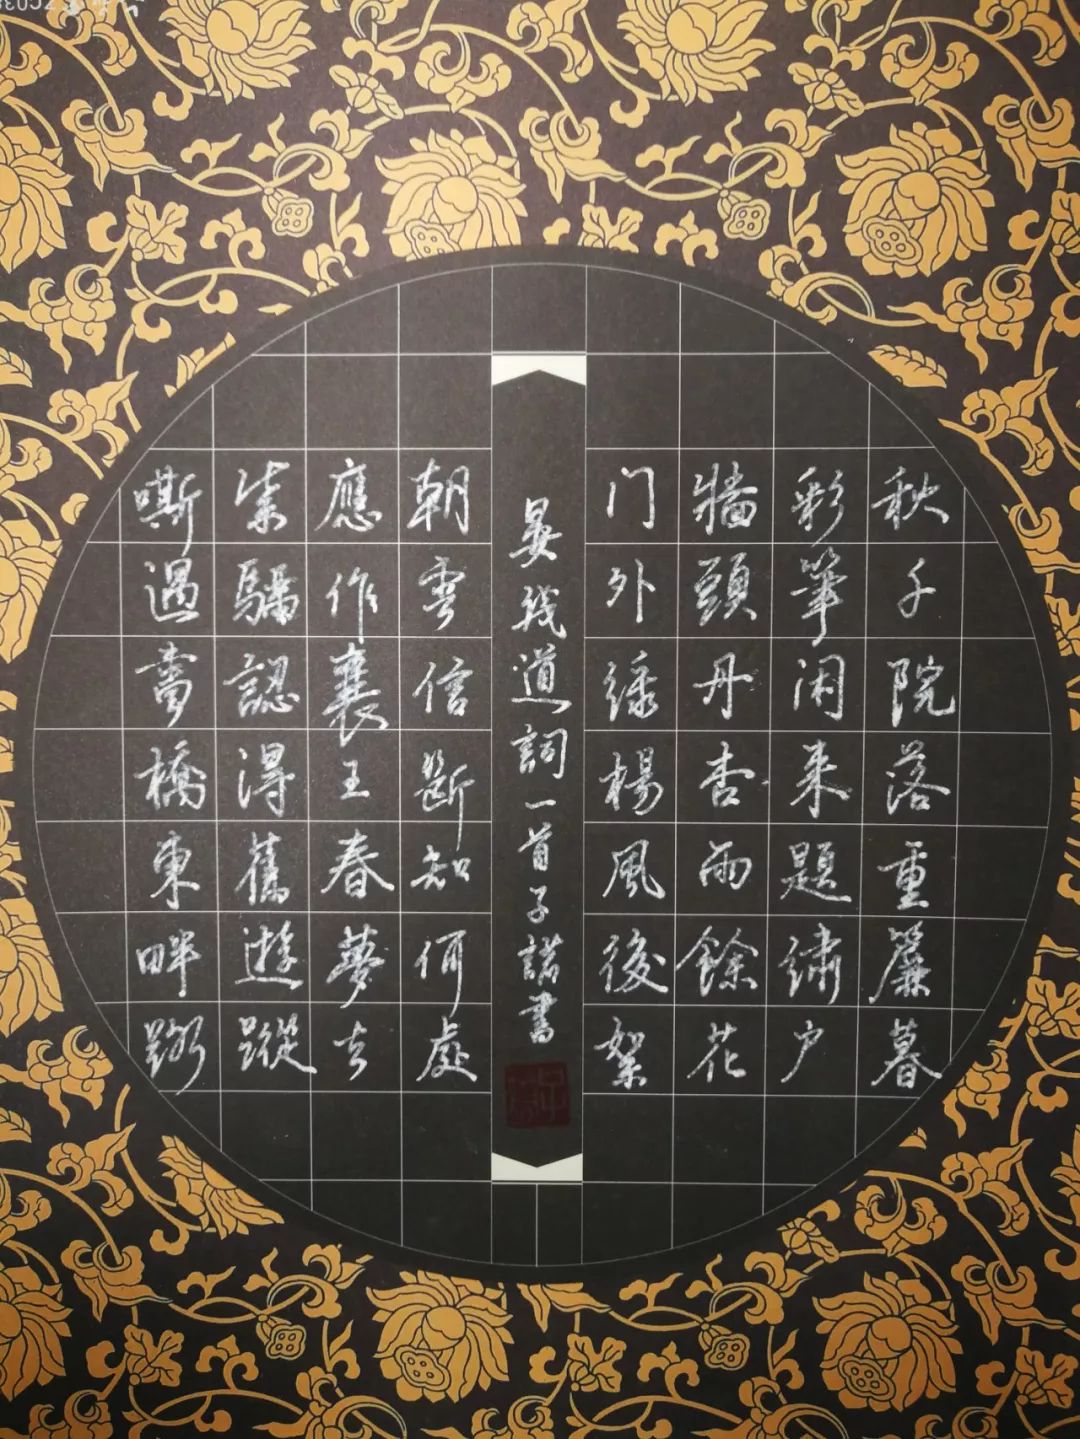 秋千院落重簾暮
彩筆闲来題繡户
墙頭丹杏雨餘花
门外绿楊風後絮
晏幾道詞一首子諾書
朝雲信斷知何處
應作襄王春夢去
紫騮認得舊遊蹤
嘶過畫橋東畔路